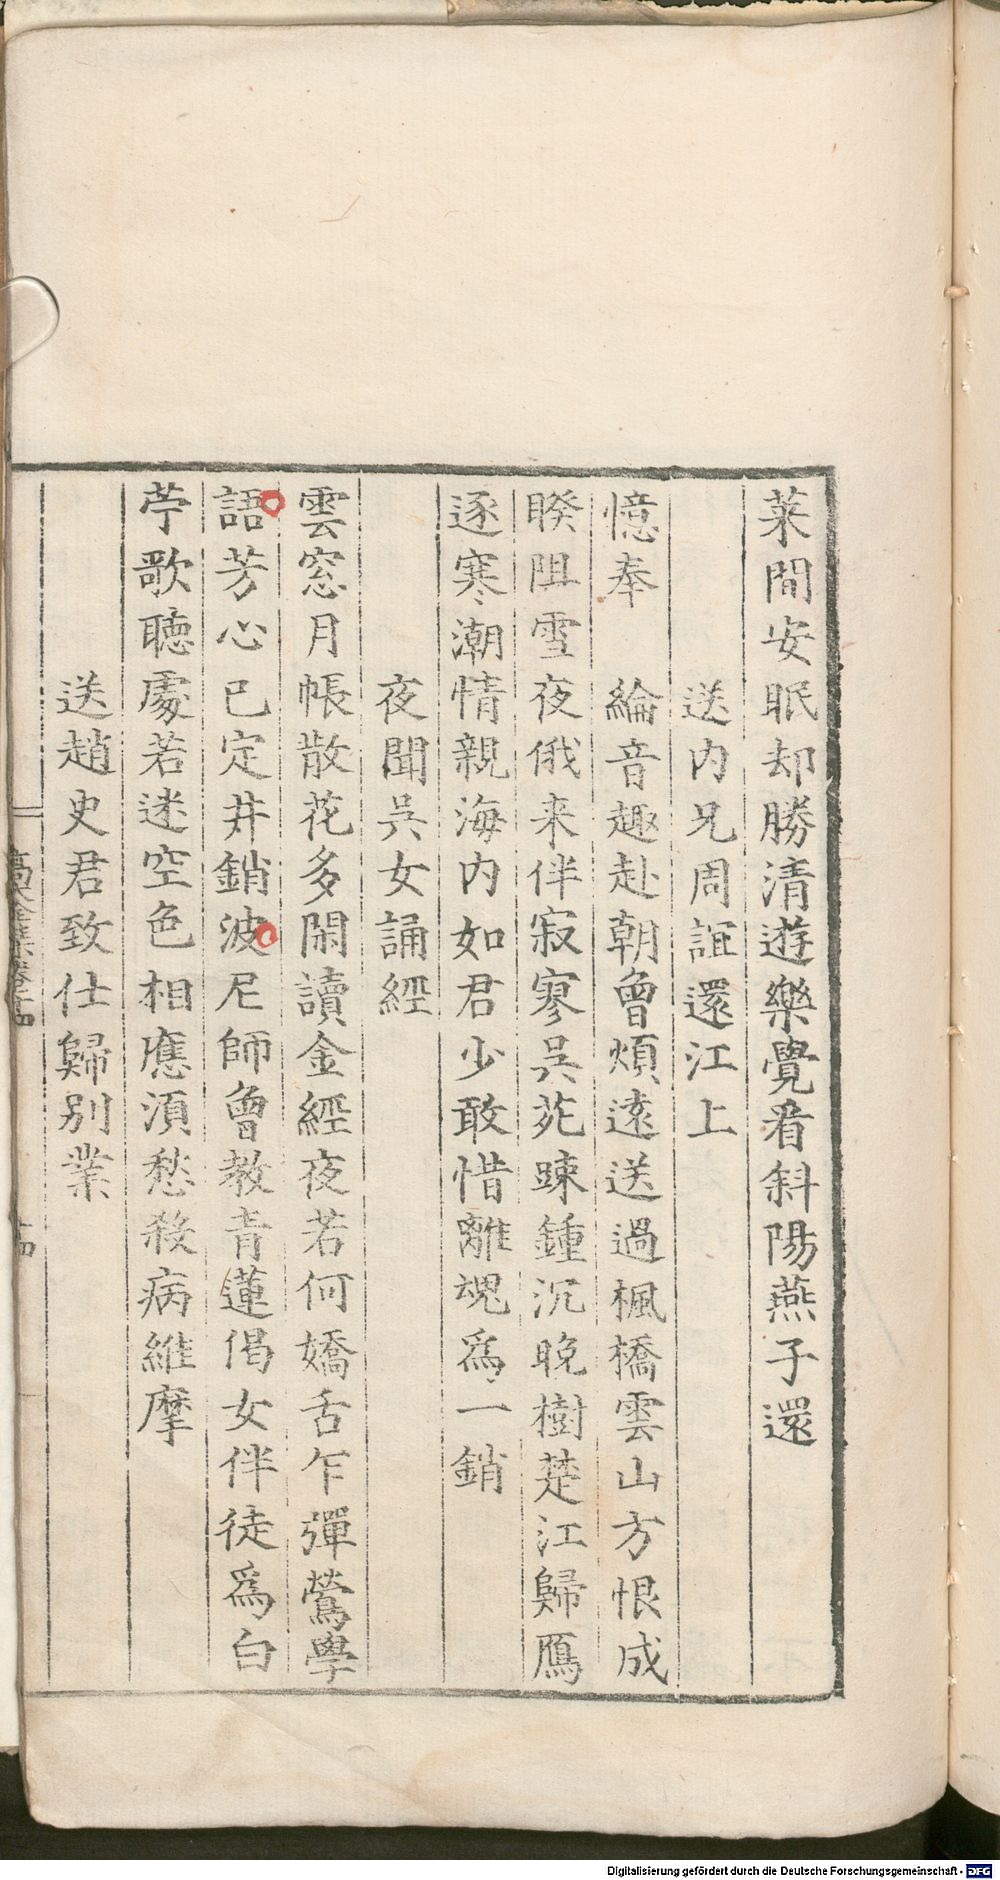 萊間安眠却勝清遊樂覺看斜陽燕子還
送内兄周誼還江上
憶奉 綸音趣赴朝曾煩遠送過楓橋雲山方恨成
睽阻雪夜俄来伴寂寥吳苑踈鍾沉晚樹楚江歸鴈
逐寒潮情親海内如君少敢惜離魂爲一銷
夜聞吳女誦經
雲窓月帳散花多閑讀金經夜若何嬌舌乍彈鶯學
語芳心已定井銷波尼師曾教青蓮偈女伴徒爲白
苧歌聽處若迷空色相應須愁殺病維摩
送趙史君致仕歸別業
Digitalisierung gefördert durch die Deutsche Forschungsgemeinschaft - DFG